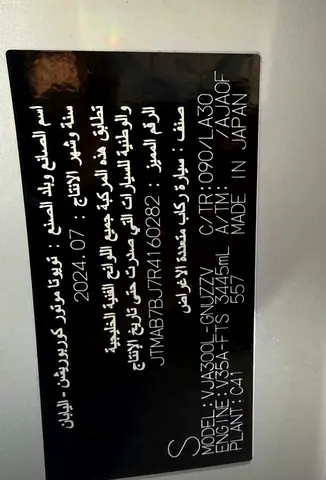 اسم الصانع وبلد الصنع : تويوتا موتور كوربوريشن - اليابان
سنة وشهر الانتاج : 2024.07
تطابق هذه المركبة جميع اللوائح الفنية الخليجية
والوطنية للسيارات التي صدرت حتى تاريخ الإنتاج
الرقم المميز : JTMAB7BJ7R4160282
صنف : سيارة ركاب متعددة الاغراض
S
MODEL:VJA300L-GNUZZV C/TR:090/LA30
ENGINE:V35A-FTS 3445mL A/TM: /AJA0F
PLANT:C41 557 MADE IN JAPAN